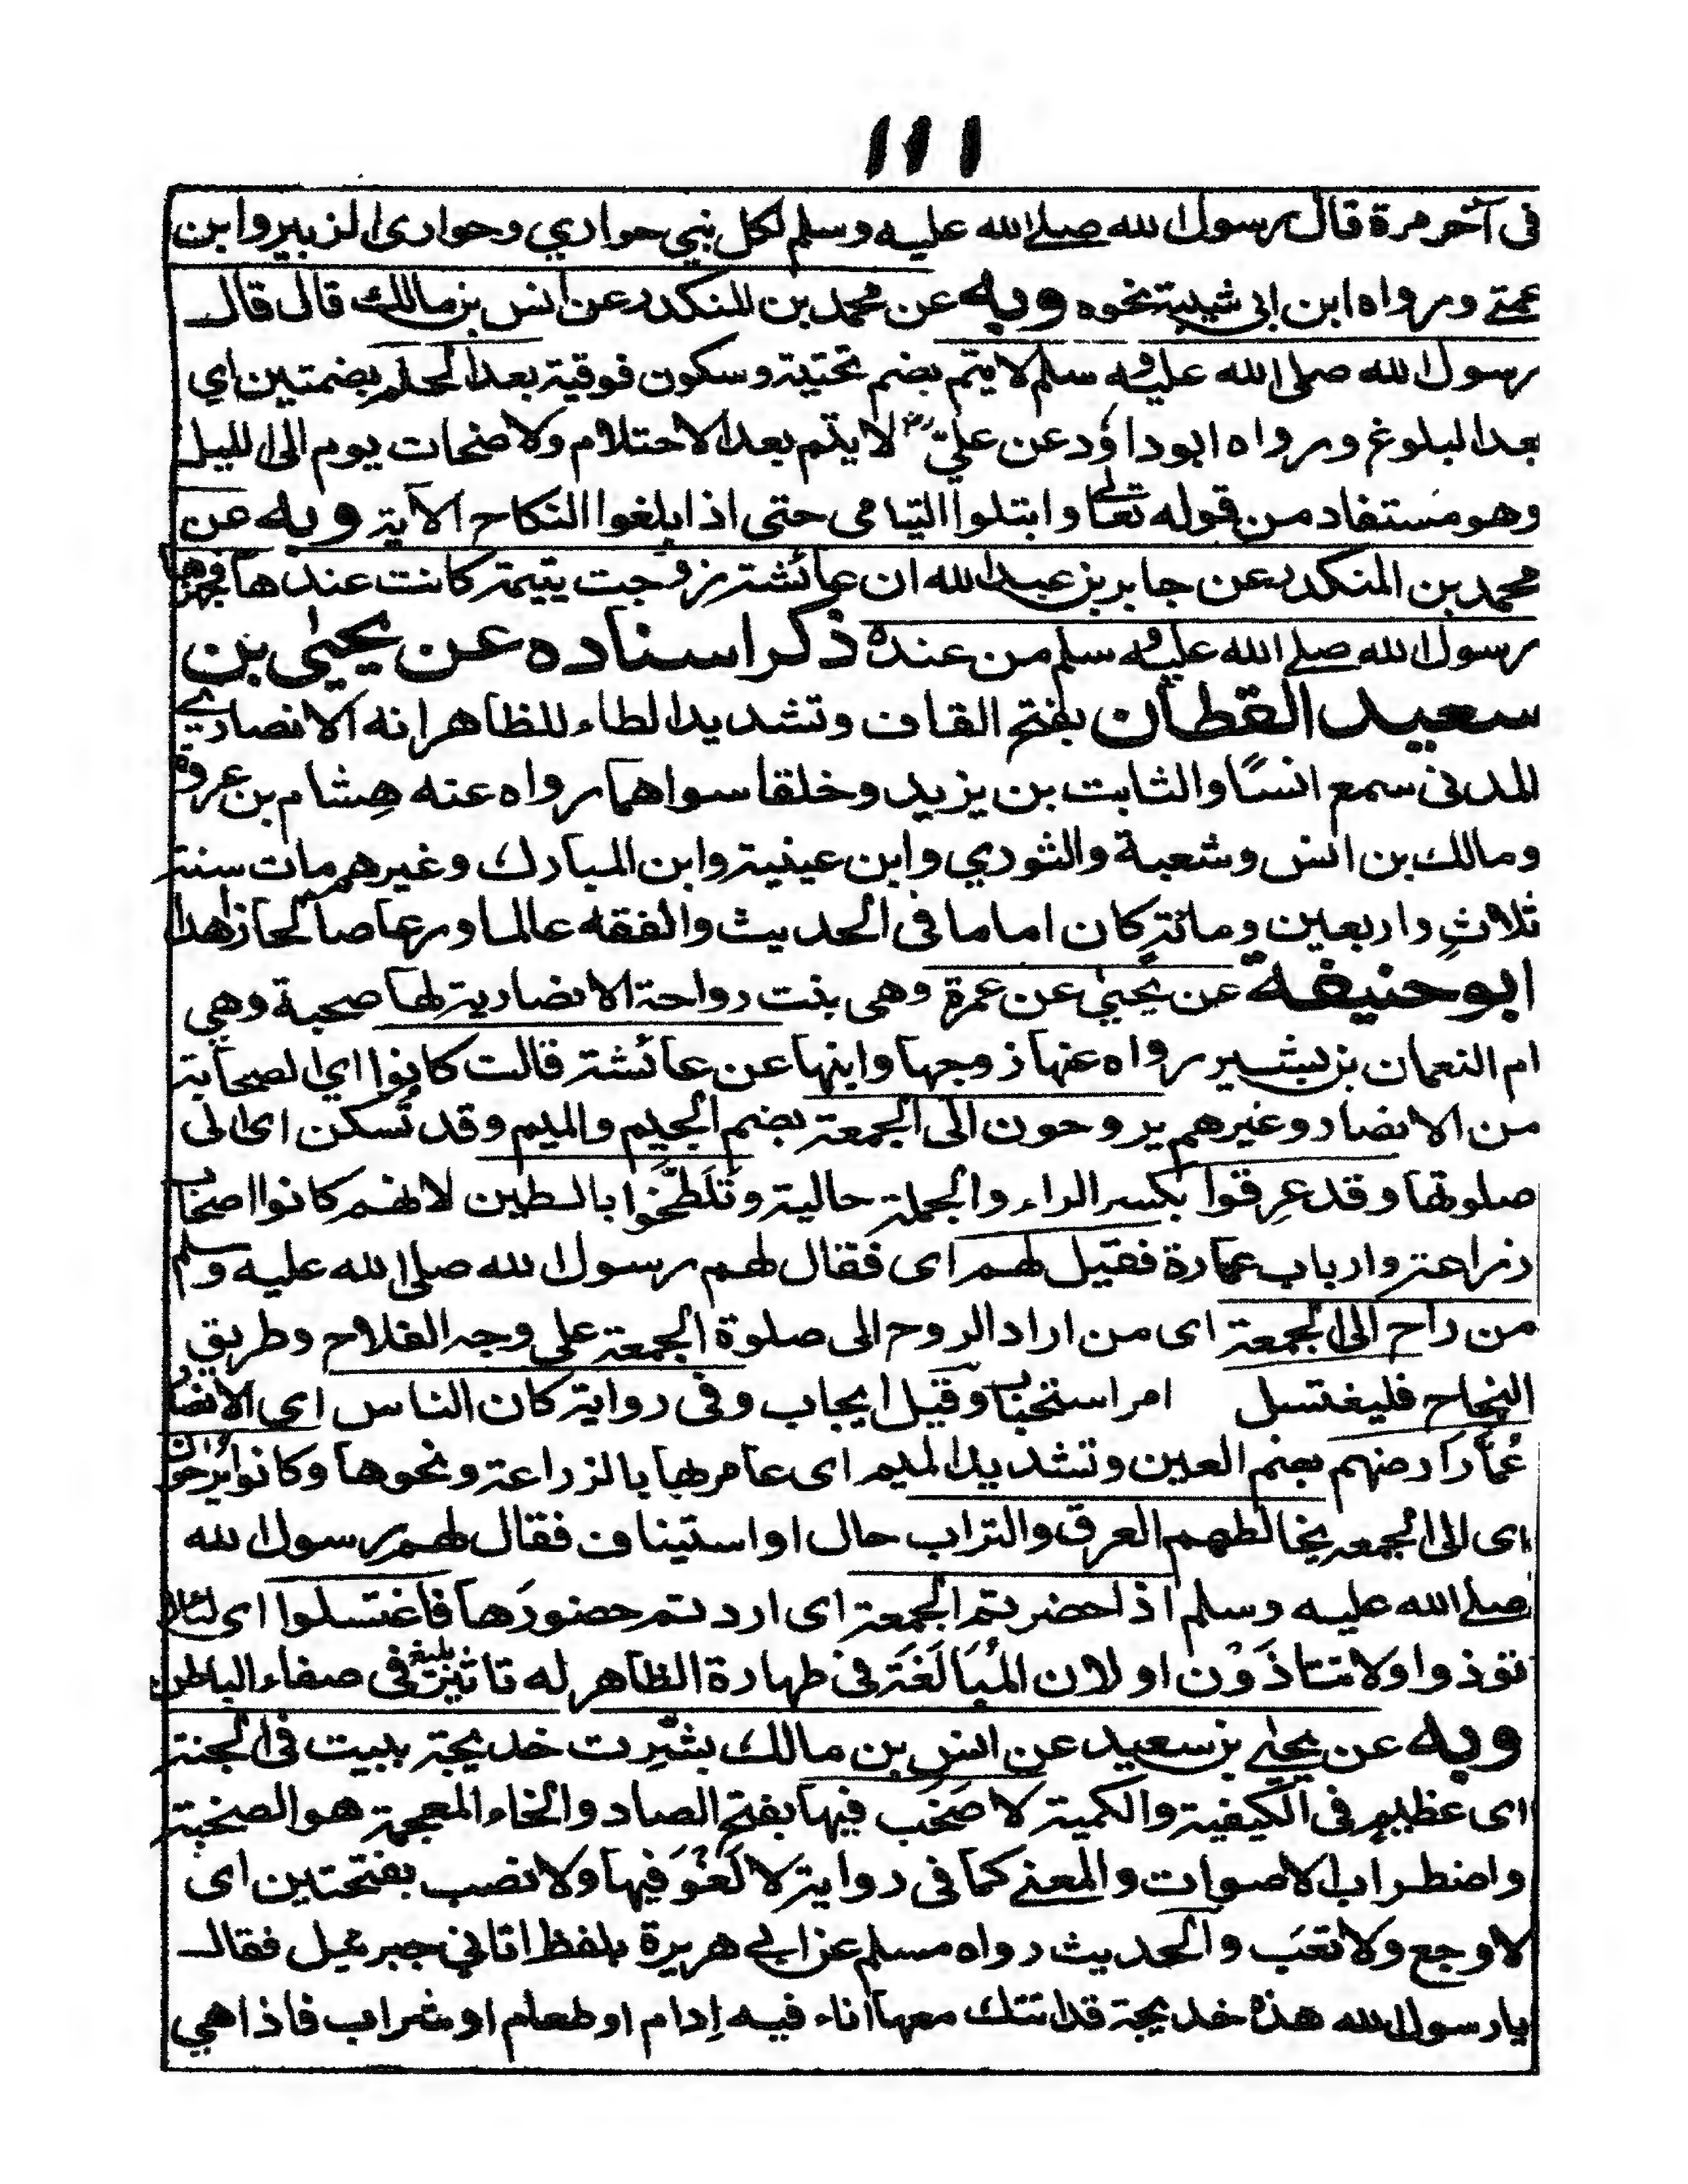 ١١١
فى آخر مرة قال رسول الله صلے الله عليه وسلم لكل نبي حواري وحوارى الزبير وابن
عمتے ورواه ابن ابى شيبة نحوه وبه عن محمد بن المنكدر عن انس بن مالك قال قال
رسول الله صلى الله عليه وسلم لا يتم بضم تحتية وسكون فوقية بعد الحلم بضمتين اي
بعد البلوغ ورواه ابو داؤد عن عليؓ لا يتم بعد الاحتلام ولا ضحات يوم الى الليل
وهو مستفاد من قوله تعالى وابتلوا اليتامى حتى اذا بلغوا النكاح الآية وبه عن
محمد بن المنكدر عن جابر بن عبد الله ان عائشة زوجت يتيمة كانت عندها فجهزها
رسول الله صلے الله عليه وسلم من عنده ذكر اسناده عن يحيٰى بن
سعيد القطان بفتح القاف وتشديد الطاء للظاهر انه الانصارے
المدنى سمع انسًا والثابت بن يزيد وخلقا سواهما رواه عنه هِشام بن عروة
ومالك بن انس وشعبة والثوري وابن عينية وابن المبارك وغيرهم مات سنة
ثلاثٍ واربعين ومائةٍ كان اماما فى الحديث والفقه عالما ورعا صالحا زاهدا
ابو حنيفة عن يحيٰى عن عمرة وهى بنت رواحة الانصارية لها صحبة وهي
ام النعمان بن بشير رواه عنها زوجها وابنها عن عائشة قالت كانوا اي الصحابة
من الانصار وغيرهم يروحون الى الجمعة بضم الجيم والميم وقد تُسكن اى الى
صلوتها وقد عرِقوا بكسر الراء والجملة حالية وتَلَطَّخوا بالطين لانهم كانوا اصحاب
زراعة وارباب عمارة فقيل لهم اى فقال لهم رسول الله صلى الله عليه وسلم
من راح الى الجمعة اى من اراد الروح الى صلوة الجمعة على وجه الفلاح وطريق
النجاح فليغتسل امر استحباب وقيل ايجاب وفى رواية كان الناس اي الانصار
عُمَّار ارضهم بضم العين وتشديد الميم اى عامريها بالزراعة ونحوها وكانوا يروحون
اى الى الجمعة يخالطهم العرق والتراب حال او استيناف فقال لهم رسول الله
صلے الله عليه وسلم اذا حضرتم الجمعة اى اردتم حضورَها فاغتسلوا اى لئلا
توذوا ولا تتاذَوْن او لان المُبَالَغَة فى طهارة الظاهر له تاثير بليغ فى صفاء الباطن
وبه عن يحيٰے بن سعيد عن انس بن مالك بشّرت خديجة ببيت فى الجنة
اى عظيم فى الكيفية والكمية لا صَخَب فيها بفتح الصاد والخاء المعجمة هو الصخبة
واضطراب الاصوات والمعنے كما فى رواية لا لَغْوَ فيها ولا نصب بفتحتين اى
لا وجع ولا تعَب والحديث رواه مسلم عن ابي هريرة بلفظ اتاني جبرئيل فقال
يا رسول الله هذه خديجة قد اتتك معها اناء فيه إدام او طعام او شراب فاذا هي